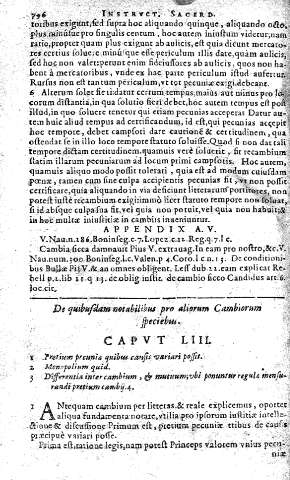 796 INSTRVCT. SACERD.
toribus exigunt, sed supra hoc aliquando quinque, aliquando octo,
plus minusue pro singulis centum, hoc autem iniustum videtur, nam
ratio, propter quam plus exigunt ab aulicis, est quia dicunt mercato-
res certius solue.e. minúsque esse periculum illis date, quàm aulicis,
sed hoc non valet: petunt enim fideiussores ab aulicis, quos non ha-
bent à mercatoribus, vnde ex hac parte periculum istud aufertur.
Rursus non est tantum periculum, vt tot pecuniæ exigi debeant.
6 Alterum solet fit: datur certum tempus, maius aut minus pro lo-
corum distantia, in qua solutio fieri debet, hoc autem tempus est post
illud, in quo soluere tenetur qui etiam pecunias acceperat Datur au-
tem huic aliud tempus ad certificandum, id est, qui pecunias accepit
hoc tempore, debet campsori dare cautionē & certitudinem, qua
ostendat se in illo loco tempore statuto soluisse. Quod si non dat tali
tempore dictam certitudinem, quamuis verè soluerit, fit recambium
statim illarum pecuniarum ad locum primi campsoris. Hoc autem,
quamuis aliquo modo possit tolerari, quia est ad modum cuiusdam
pœnæ, tamen cum sine culpa accipientis pecunias fit, vt non possit
certificare, quia aliquando in via deficiunt litteræ aut portitores, non
potest iustè recambium exigi: immò licet statuto tempore non soluat,
si id absque culpa sua fit. vel quia non potuit, vel quia non habuit; &
in hoc multæ iniustitiæ in cambiis inueniuntur.
APPENDIX A.V.
V. Nau. n. 286. Boninseg. c. 7. Lopez c. 21 Reg. q. 7. l c.
Cambia sicca damnauit Pius V. extrauag. In eam pro nostro, &c. V.
Nau. num. 300. Boninseg. l. c. Valen. p. 4 Coro. l c n. 13. De conditioni-
bus Bullæ Pij V. & an omnes obligent. Less dub. 12. eam explicat Rebel
p. 2. lib. 21 q. 13. de oblig. instic. de cambio sicco Candidus art. 6.
loc. cit.
De quibusdam notabilibus pro aliorum Cambiorum
speciebus.
CAPVT LIII.
1 Pretium pecuniæ quibus causis variari possit.
2 Monopolium quid.
3 Differentia inter cambium, & mutuum, vbi ponuntur regulæ mensu-
randi pretium cambij. 4.
1 ANtequam cambium per litteras, & reale explicemus, oportet
aliqua fundamenta notare, vtilia pro ipsorum institiæ intelle-
ctione & discussione Primum est, pretium pecuniæ tribus de causis
præcipuè variari posse.
Prima est, ratione legis, nam potest Princeps valorem vnius pecu-
niæ